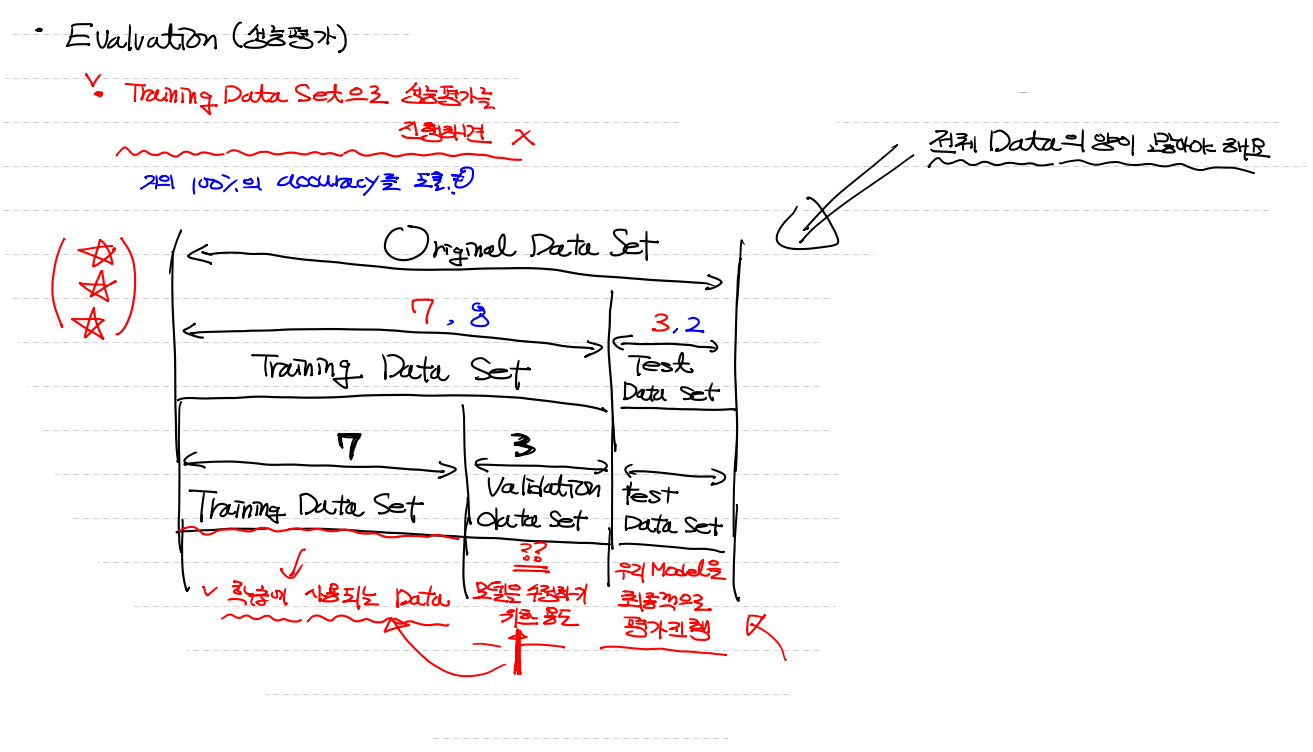 • Evaluation (성능평가)
• Training Data Set으로 성능평가를
진행하면 X
거의 100%의 accuracy를 도출.
전체 Data의 양이 많아야 해요
Original Data Set
7, 8
3, 2
Training Data Set
Test
Data Set
7
3
Training Data Set
Validation
data Set
test
Data Set
학습에 사용되는 Data
모델을 수정하기
위한 용도
우리 Model을
최종적으로
평가진행